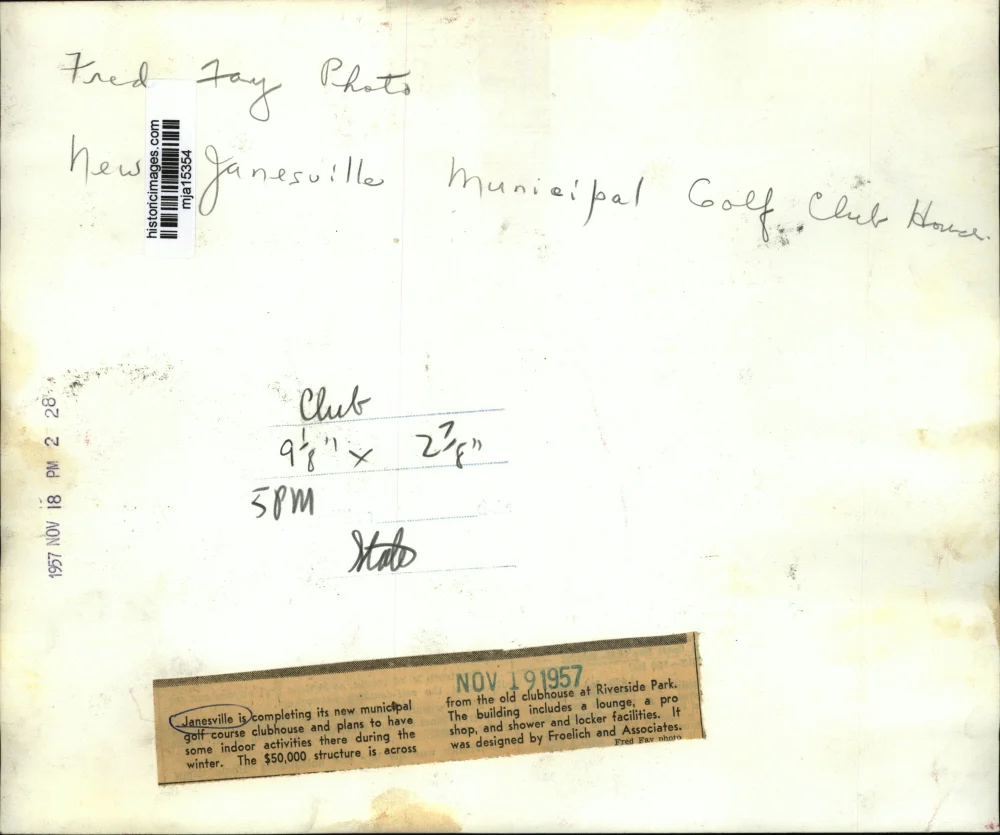 Fred Fay Photo
historicimages.com
mja15354
New Janesville Municipal Golf Club House.
Club
9 1/8" x 2 7/8"
5PM
State
1957 NOV 18 PM 2 28
NOV 19 1957
Janesville is completing its new municipal
golf course clubhouse and plans to have
some indoor activities there during the
winter. The $50,000 structure is across
from the old clubhouse at Riverside Park.
The building includes a lounge, a pro
shop, and shower and locker facilities. It
was designed by Froelich and Associates.
Fred Fay photo